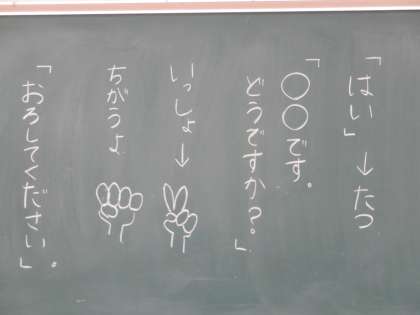 「はい」→たつ
「○○です。
どうですか?」
いっしょ→
ちがうよ
「おろしてください」。